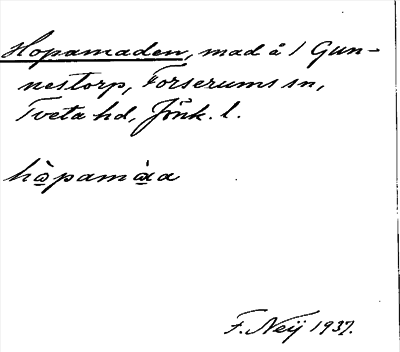 Hopamaden, mad å 1 Gun-
nestorp, Forserums sn,
Tveta hd, Jönk. l.
F. Neij 1937.